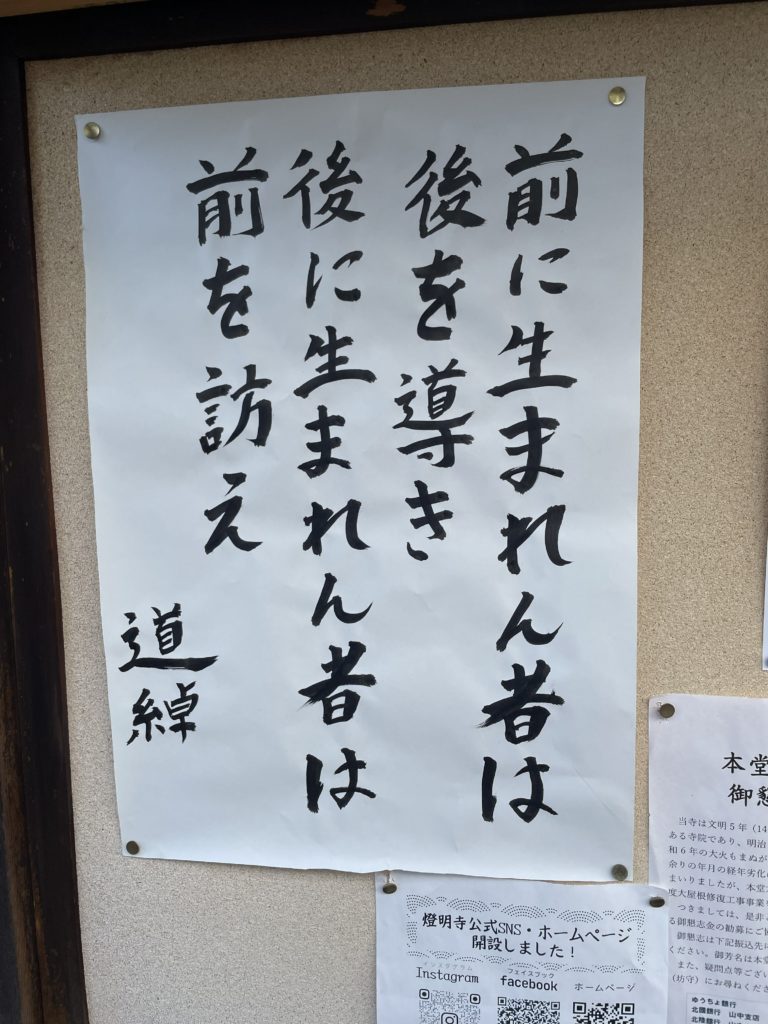 前に生まれん者は
後を導き
後に生まれん者は
前を訪え
道綽
本堂
御懇
当寺は文明5年(14
ある寺院であり、明治
和6年の大火もまぬが
余りの年月の経年劣化
まいりましたが、本堂
度大屋根修復工事事業
つきましては、是非
る御懇志金の勧募にご
御懇志は下記振込先
ください。御芳名は本堂
また、疑問点等ござい
(坊守)にお尋ねくださ
ゆうちょ銀行
北國銀行 山中支店
北陸銀行
燈明寺公式SNS・ホームページ
開設しました!
インスタグラム
Instagram
フェイスブック
facebook
ホームページ